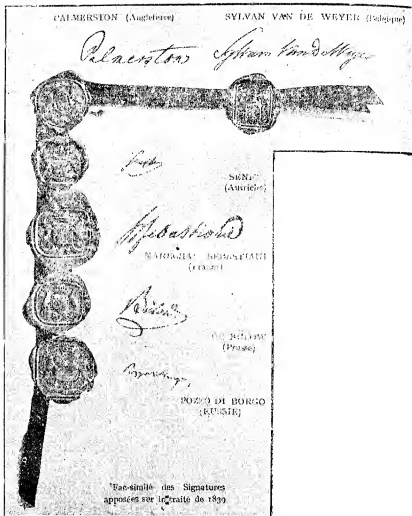 PALMERSTON (Angleterre) SYLVAN VAN DE WEYER (Belgique)
Palmerston Sylvain Van de Weyer
(Autriche)
Sebastiani
MARECHAL SEBASTIANI
(France)
Bülow
DE BULOW
(Prusse)
POZZO DI BORGO
(RUSSIE)
Fac-similé des Signatures
apposées sur le traité de 1839